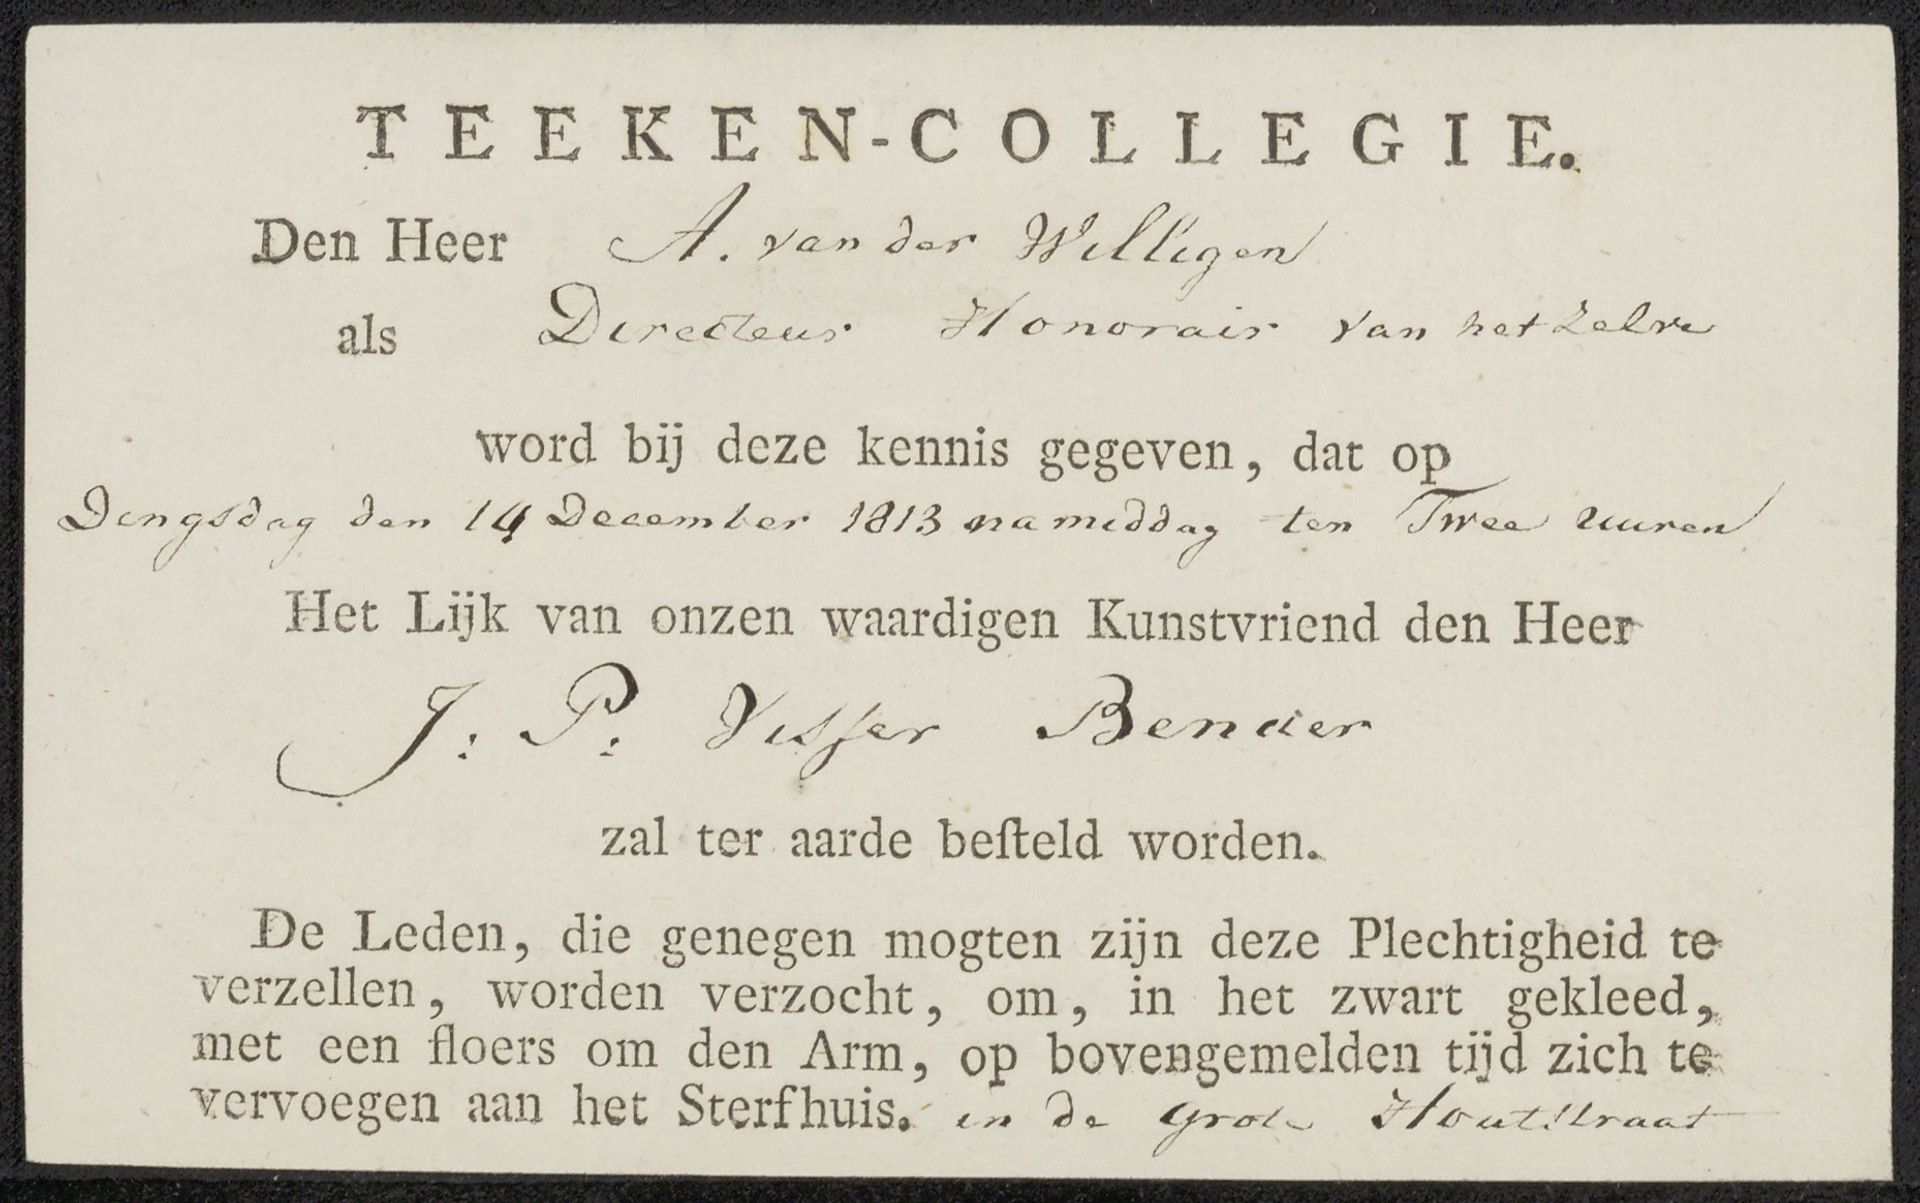 TEEKEN-COLLEGIE.
Den Heer A. van der Willigen
als Directeur Honorair van het zelve
word bij deze kennis gegeven, dat op
Dingsdag den 14 December 1813 namiddag ten Twee uuren
Het Lijk van onzen waardigen Kunstvriend den Heer
J: P: Visser Bender
zal ter aarde beſteld worden.
De Leden, die genegen mogten zijn deze Plechtigheid te
verzellen, worden verzocht, om, in het zwart gekleed,
met een floers om den Arm, op bovengemelden tijd zich te
vervoegen aan het Sterfhuis. in de Grote Houtstraat